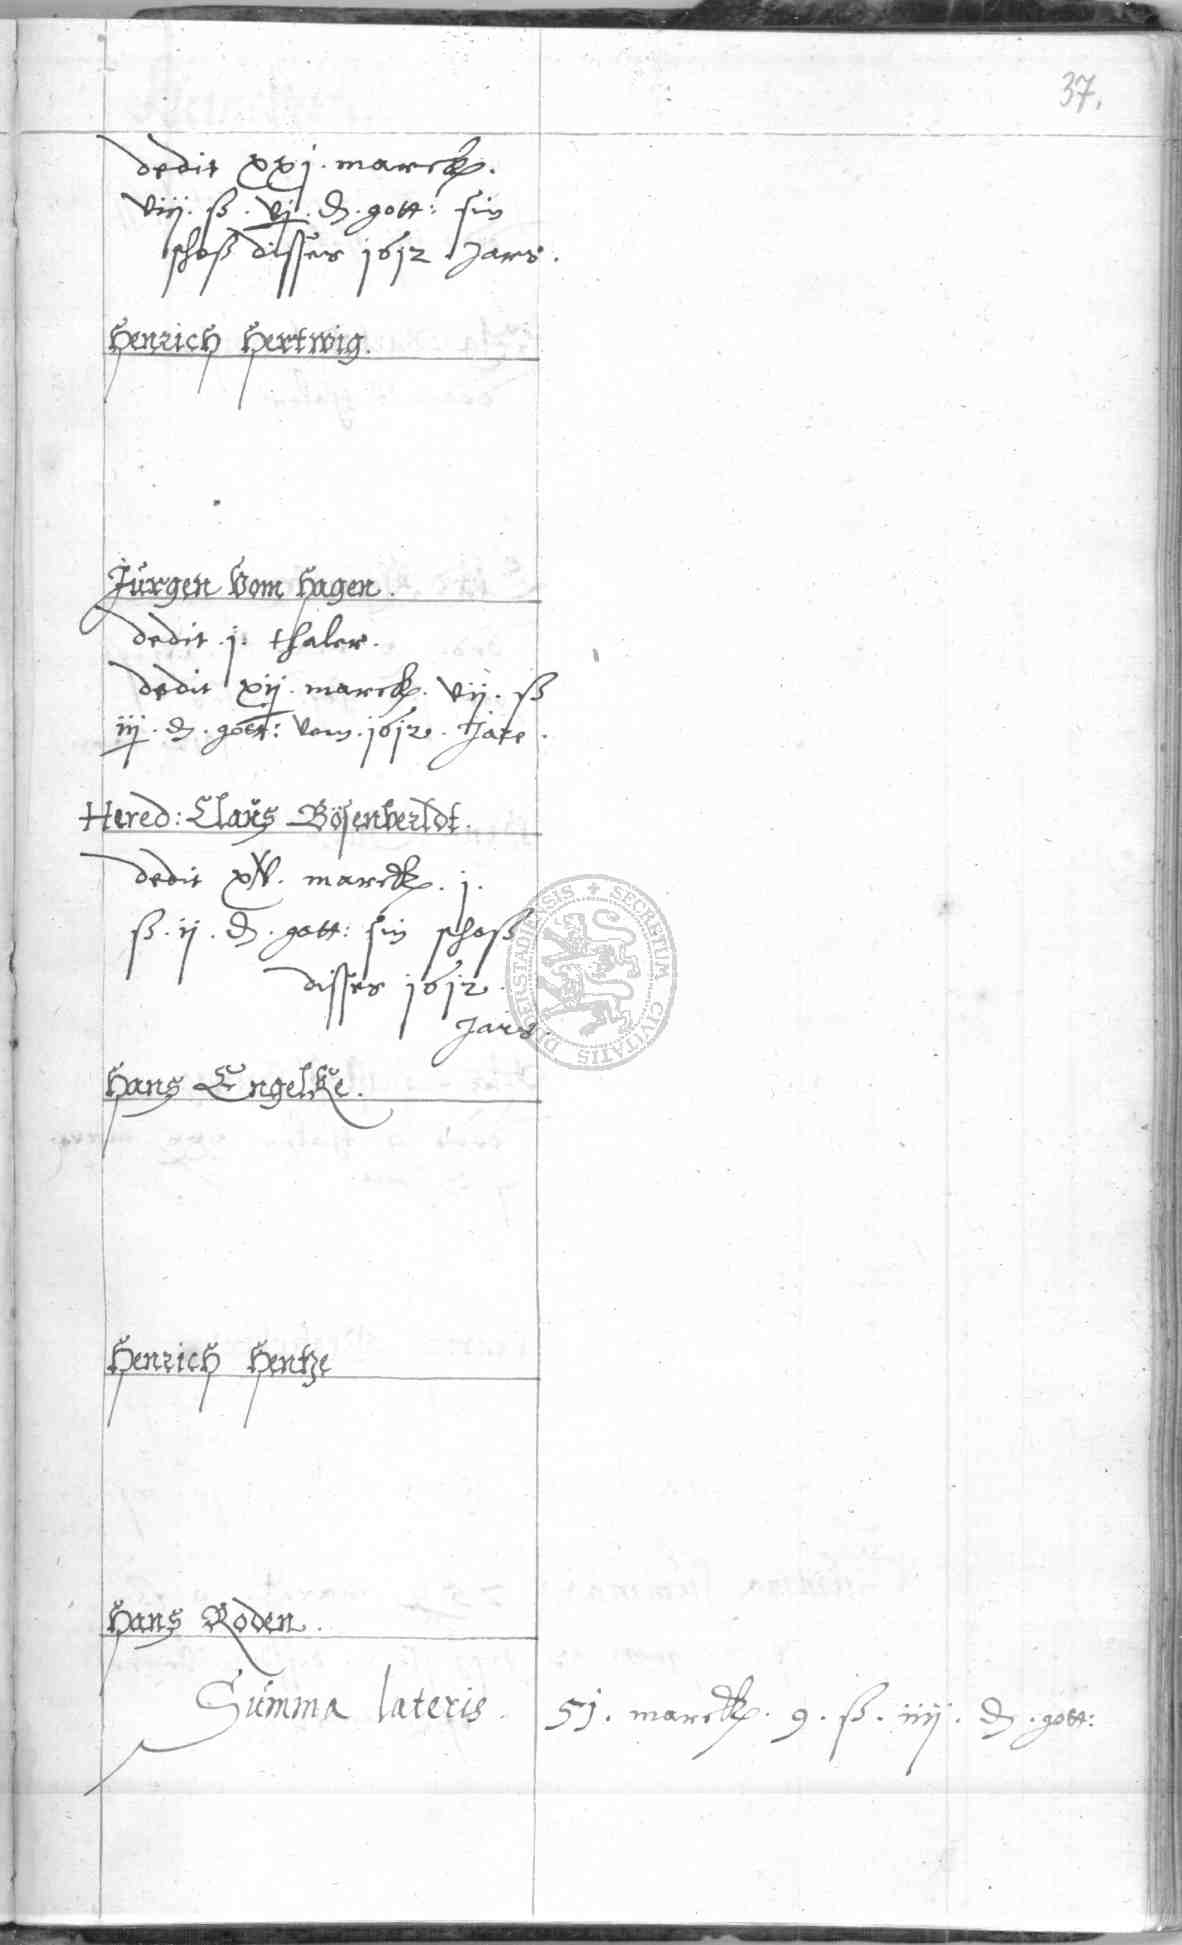 37.
dedit xxj. marck.
viij. ß. vj. ₰. gott: sin
schoß disses 1612 Jars.
Henrich Hertwig.
Jürgen Vom Hagen.
dedit .j. thaler.
dedit xij. marck. vij. ß
iij. ₰. gott: vom .1612. Jare.
Hered: Claus Bösenberldt.
dedit xv. marck. j.
ß. ij. ₰. gott: sin schoß
disses 1612.
Jars.
Hans Engelke.
Henrich Hentze
Hans Roden.
Summa lateris. 51. marck. 9. ß. iiij. ₰. gott:
SECRETUM CIVITATIS DUDERSTADIENSIS